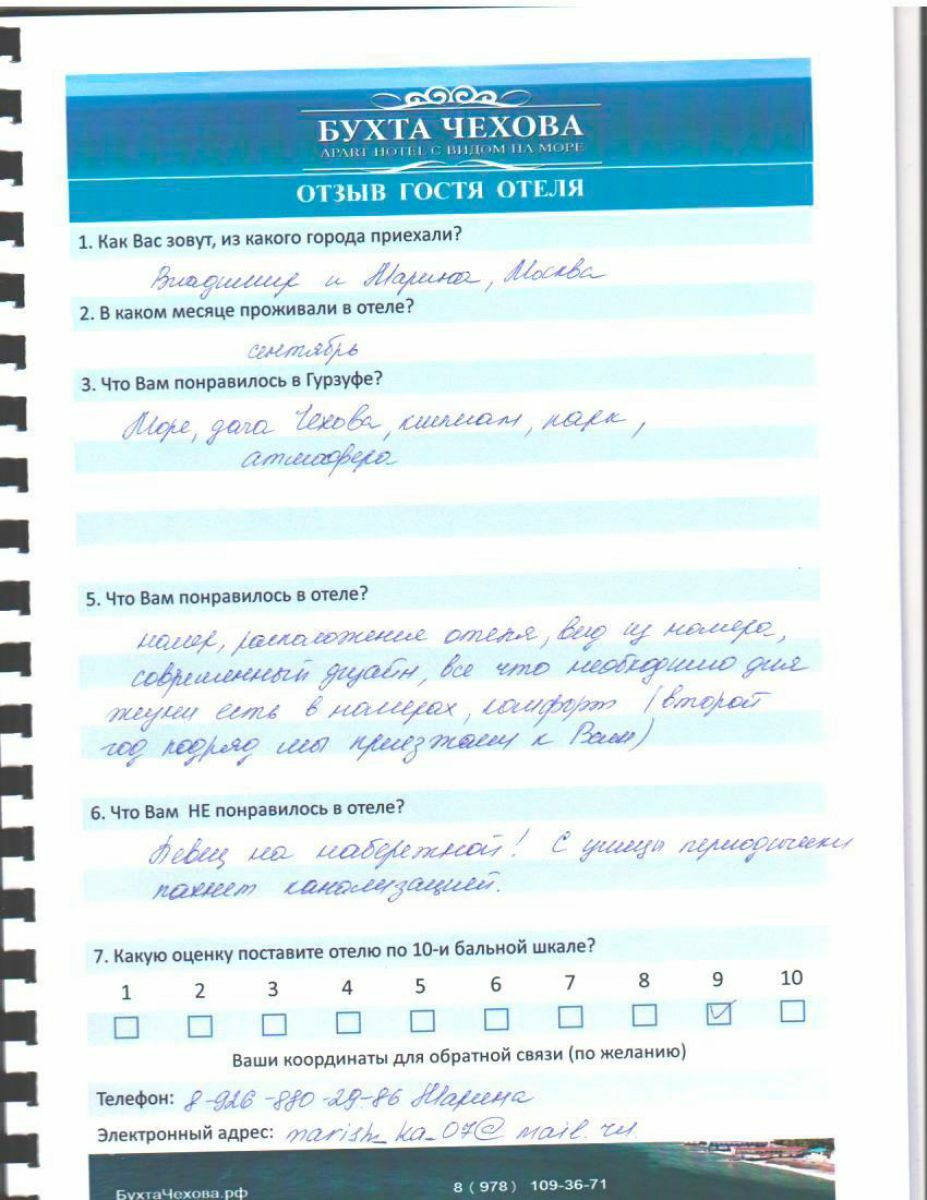 БУХТА ЧЕХОВА
APART HOTEL С ВИДОМ НА МОРЕ
ОТЗЫВ ГОСТЯ ОТЕЛЯ
1. Как Вас зовут, из какого города приехали?
Владимир и Марина, Москва
2. В каком месяце проживали в отеле?
сентябрь
3. Что Вам понравилось в Гурзуфе?
Море, дача Чехова, климат, парк,
атмосфера
5. Что Вам понравилось в отеле?
номер, расположение отеля, вид из номера,
современный дизайн, все что необходимо для
жизни есть в номерах, комфорт (второй
год подряд мы приезжаем к Вам)
6. Что Вам НЕ понравилось в отеле?
Певец на набережной! С улицы периодически
пахнет канализацией.
7. Какую оценку поставите отелю по 10-и бальной шкале?
1 2 3 4 5 6 7 8 9 10
Ваши координаты для обратной связи (по желанию)
Телефон: 8-926-880-29-86 Марина
Электронный адрес: marish_ka_07@mail.ru
БухтаЧехова.рф
8 ( 978 ) 109-36-71